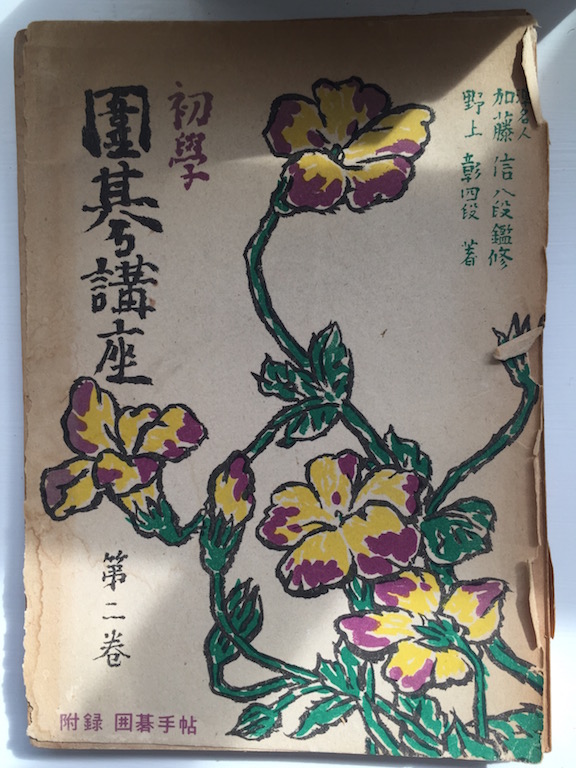 準名人
加藤 信八段鑑修
野上 彰四段 著
初學
圍碁講座
第二巻
附録 囲碁手帖